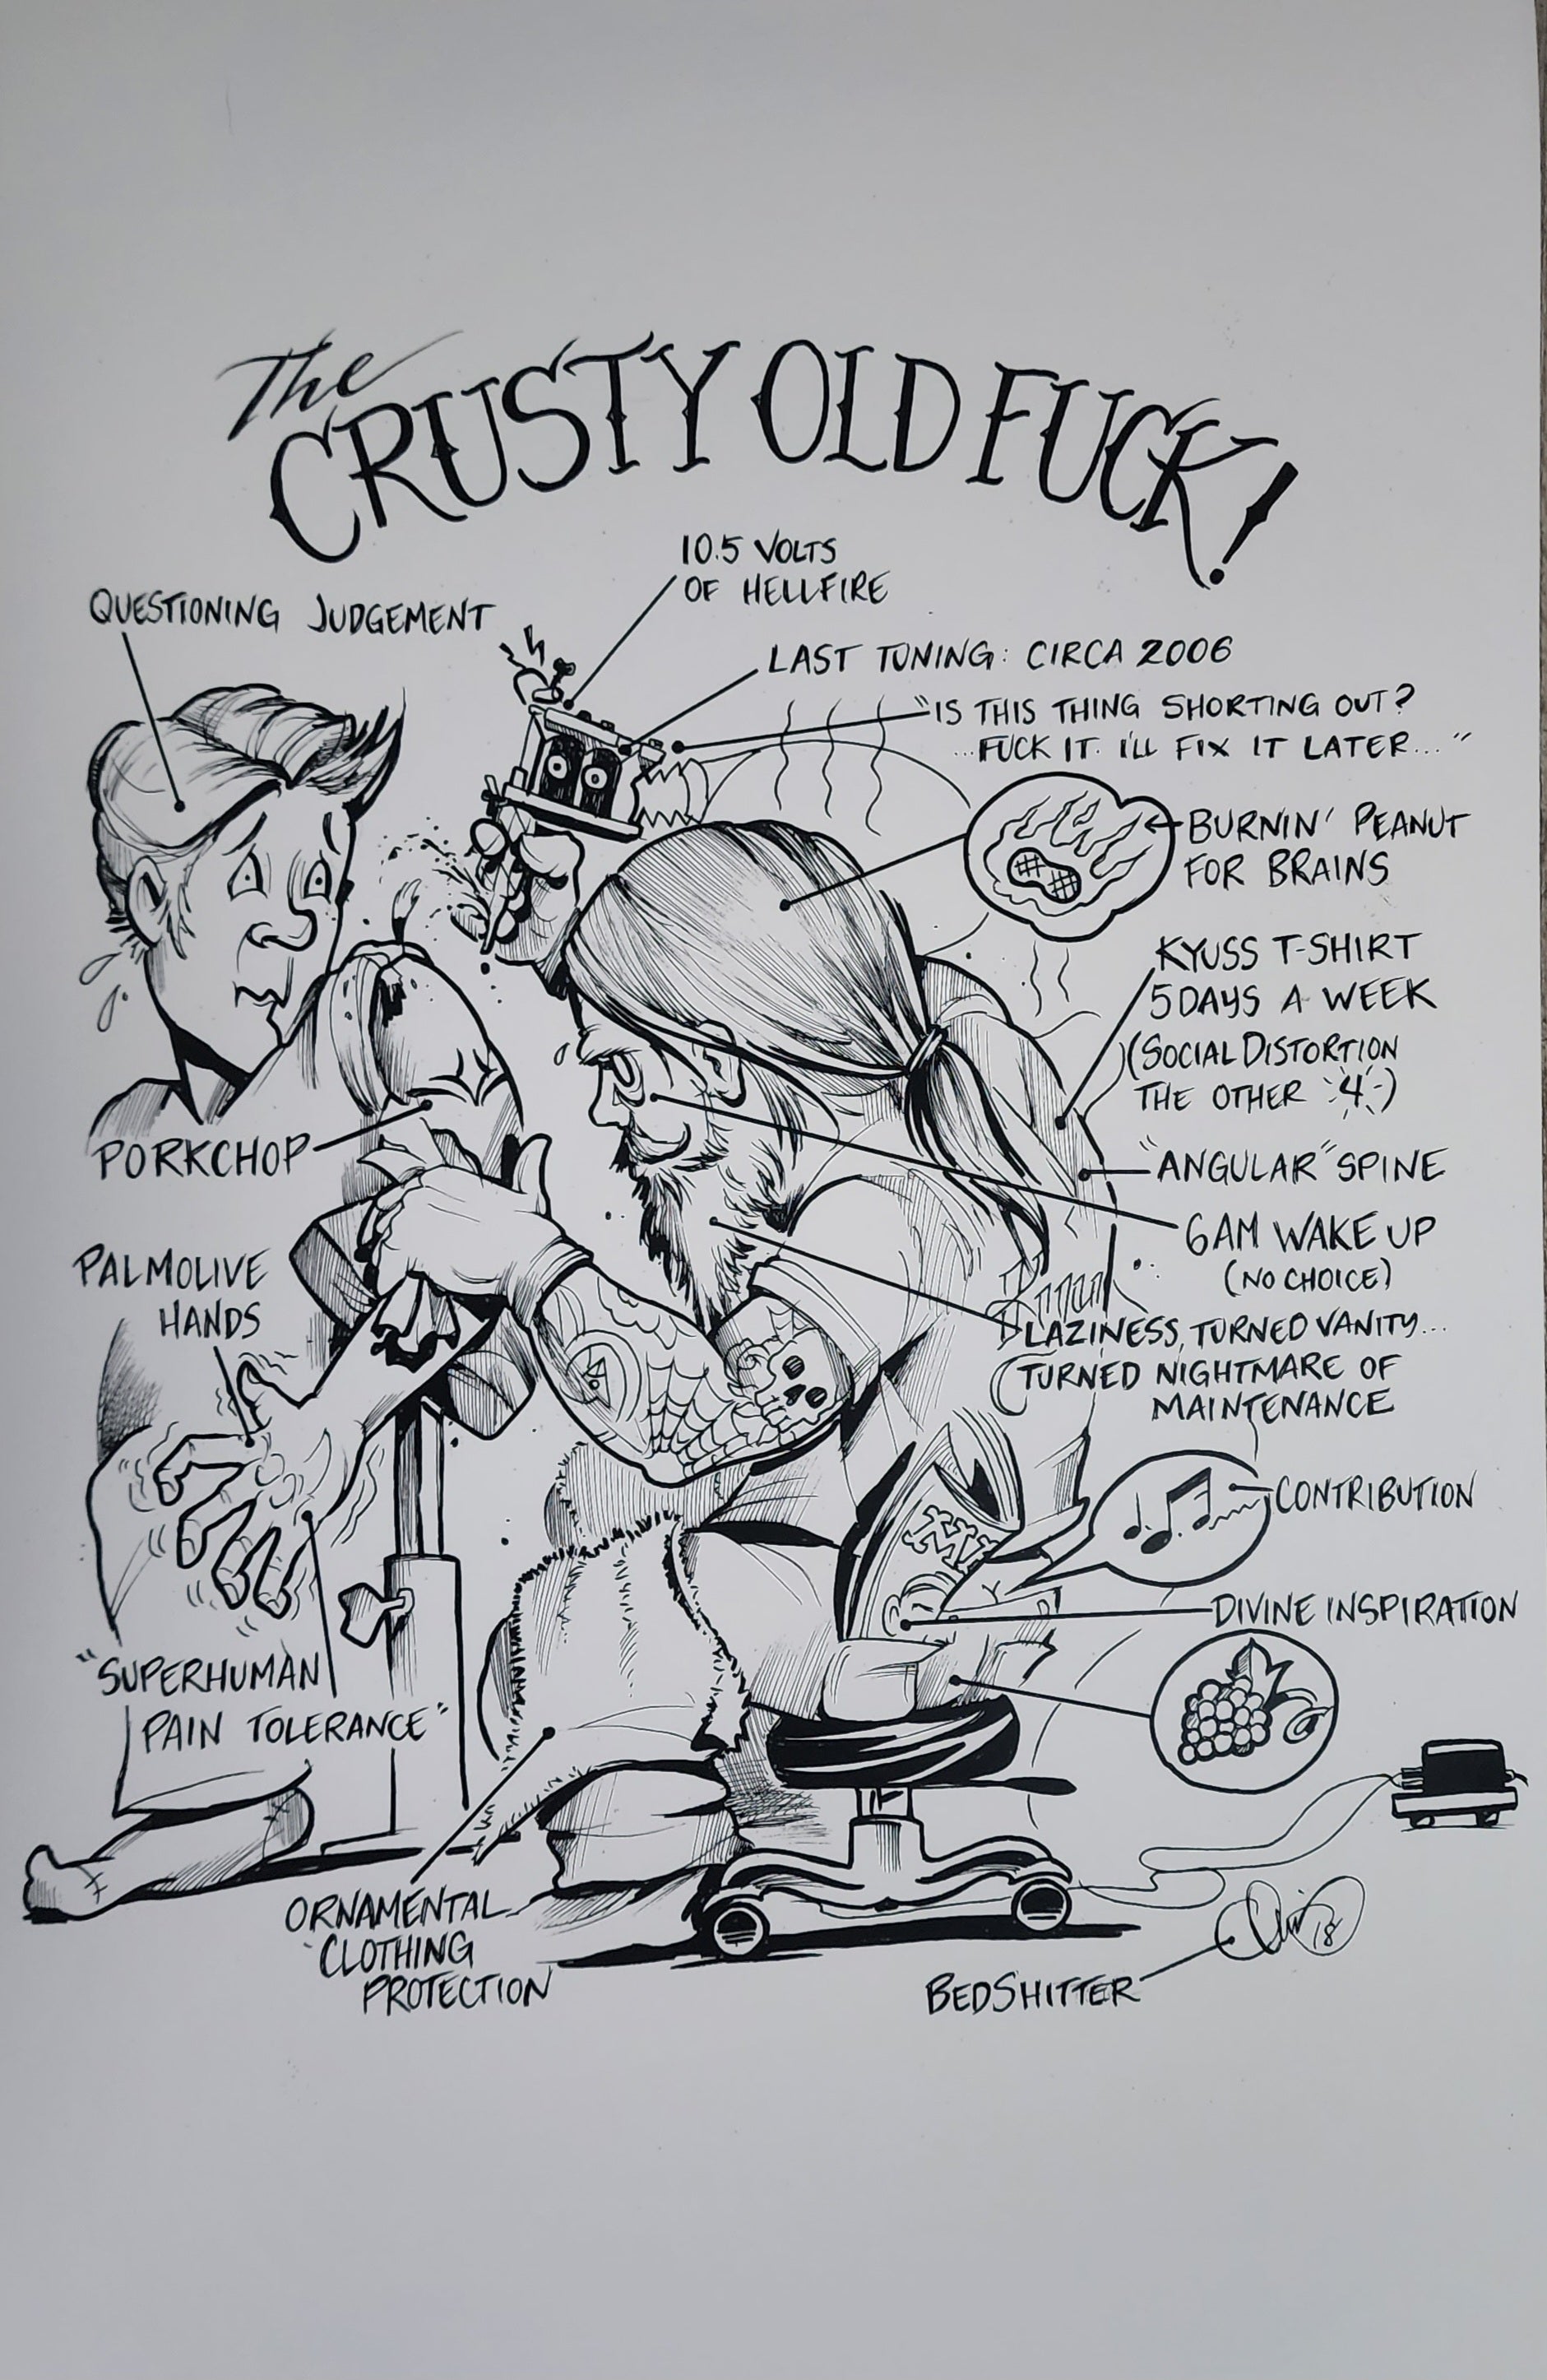 The
CRUSTY OLD FUCK!
10.5 VOLTS
OF HELLFIRE
QUESTIONING JUDGEMENT
LAST TUNING: CIRCA 2006
"IS THIS THING SHORTING OUT?
...FUCK IT. I'LL FIX IT LATER..."
BURNIN' PEANUT
FOR BRAINS
KYUSS T-SHIRT
5 DAYS A WEEK
(SOCIAL DISTORTION
THE OTHER 4)
PORKCHOP
"ANGULAR" SPINE
6AM WAKE UP
(NO CHOICE)
PALMOLIVE
HANDS
LAZINESS, TURNED VANITY...
TURNED NIGHTMARE OF
MAINTENANCE
CONTRIBUTION
DIVINE INSPIRATION
"SUPERHUMAN
PAIN TOLERANCE"
ORNAMENTAL
CLOTHING
PROTECTION
18
BEDSHITTER